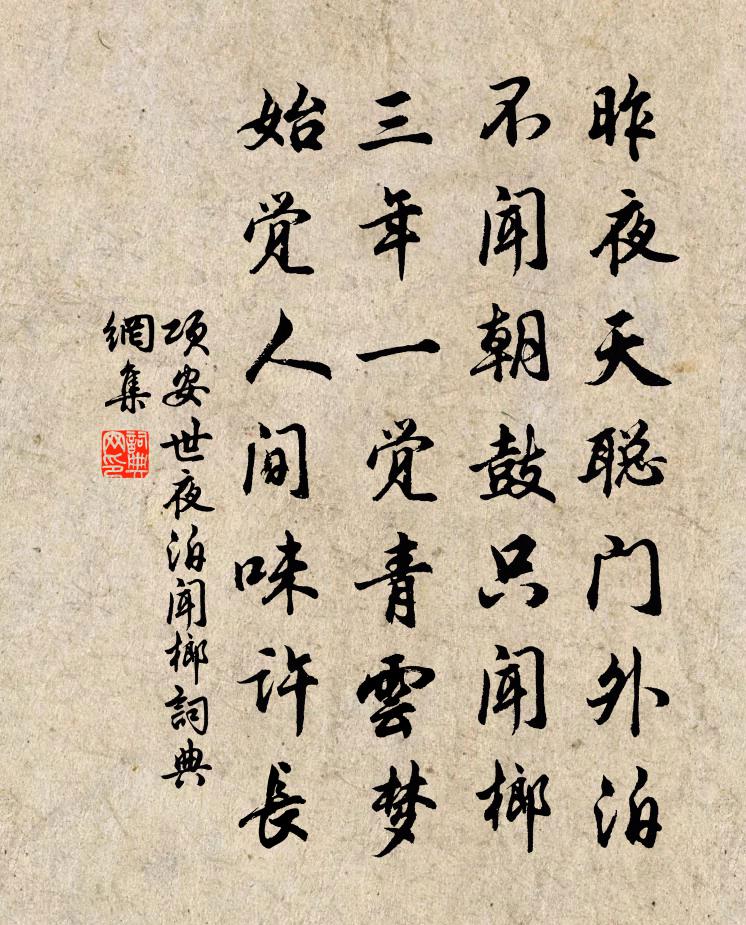 昨夜天聪门外泊
不闻朝鼓只闻榔
三年一觉青雲梦
始觉人间味许長
项安世夜泊闻榔詞典
網集
詞典
网印